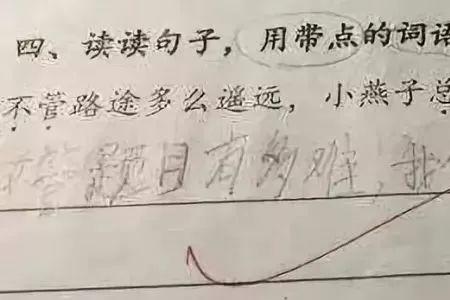 四、读读句子,用带点的词语
不管路途多么遥远,小燕子总
不管题目有多难,我